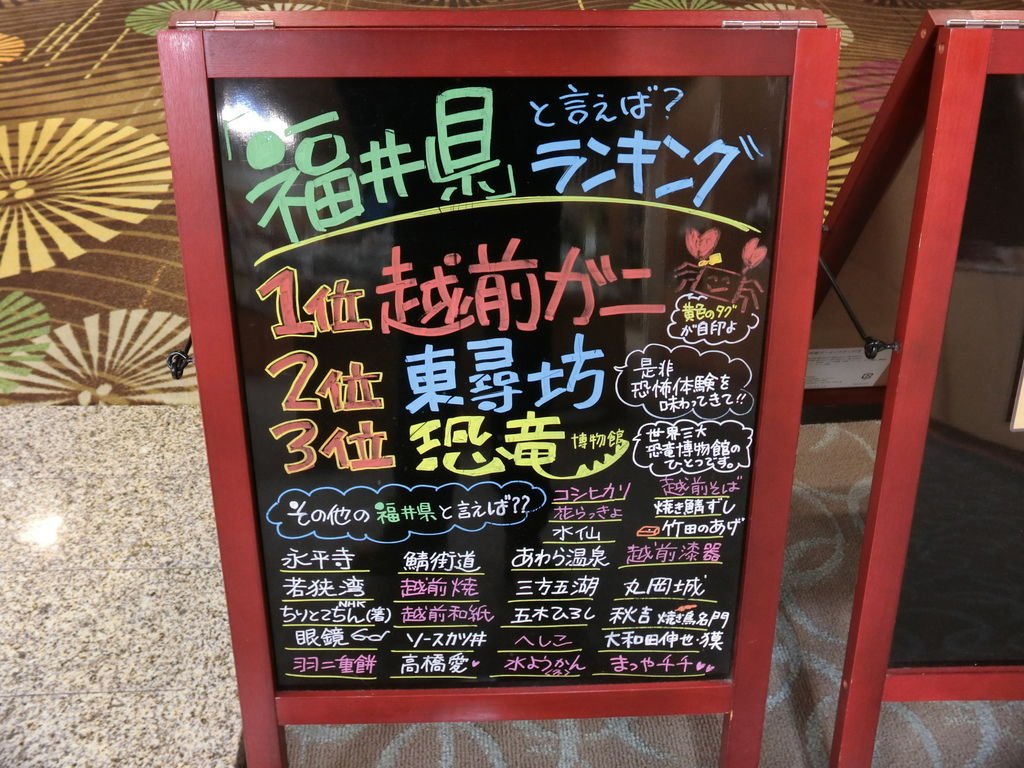 「福井県」と言えば?
ランキング
1位 越前ガニ
黄色のタグ
が目印よ
2位 東尋坊
是非
恐怖体験を
味わってきて!!
3位 恐竜博物館
世界三大
恐竜博物館の
ひとつです。
その他の福井県と言えば??
コシヒカリ 越前そば
花らっきょ 焼き鯖ずし
水仙 竹田のあげ
永平寺 鯖街道 あわら温泉 越前漆器
若狭湾 越前焼 三方五湖 丸岡城
ちりとてちん(著) NHK 越前和紙 五木ひろし 秋吉 焼き鳥名門
眼鏡 ソースカツ丼 へしこ 大和田伸也・獏
羽二重餅 高橋愛 水ようかん(冬) まつやチチ